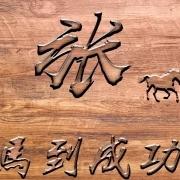 張
馬到成功